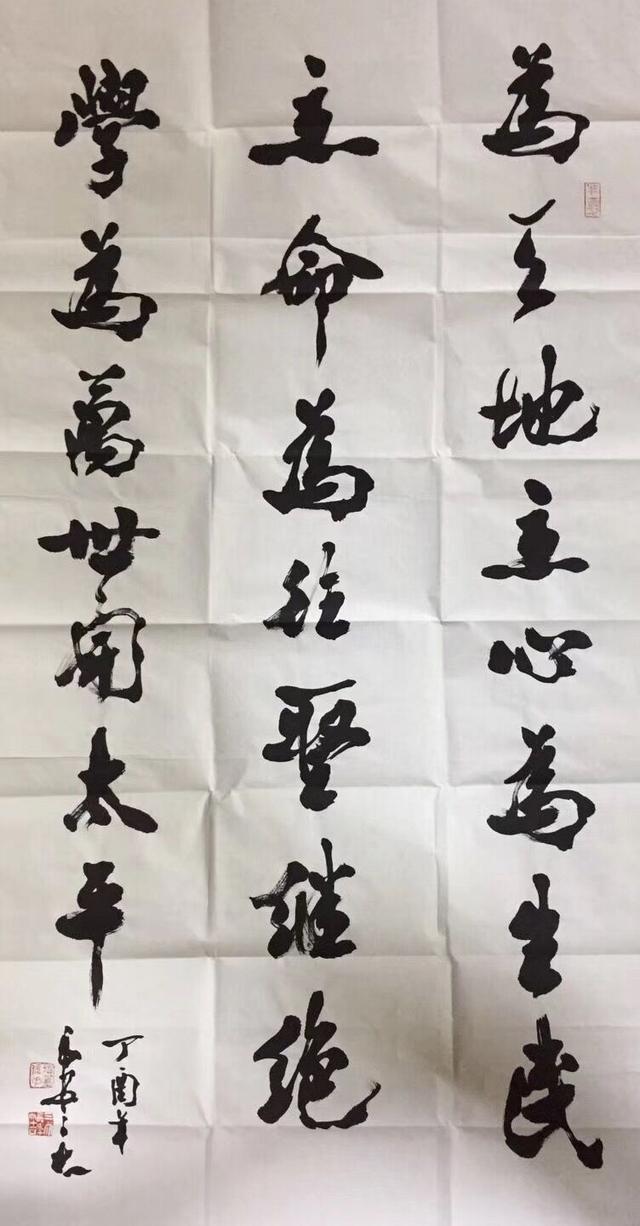 為天地立心為生民
立命為往聖繼絶
學為萬世開太平
丁酉年